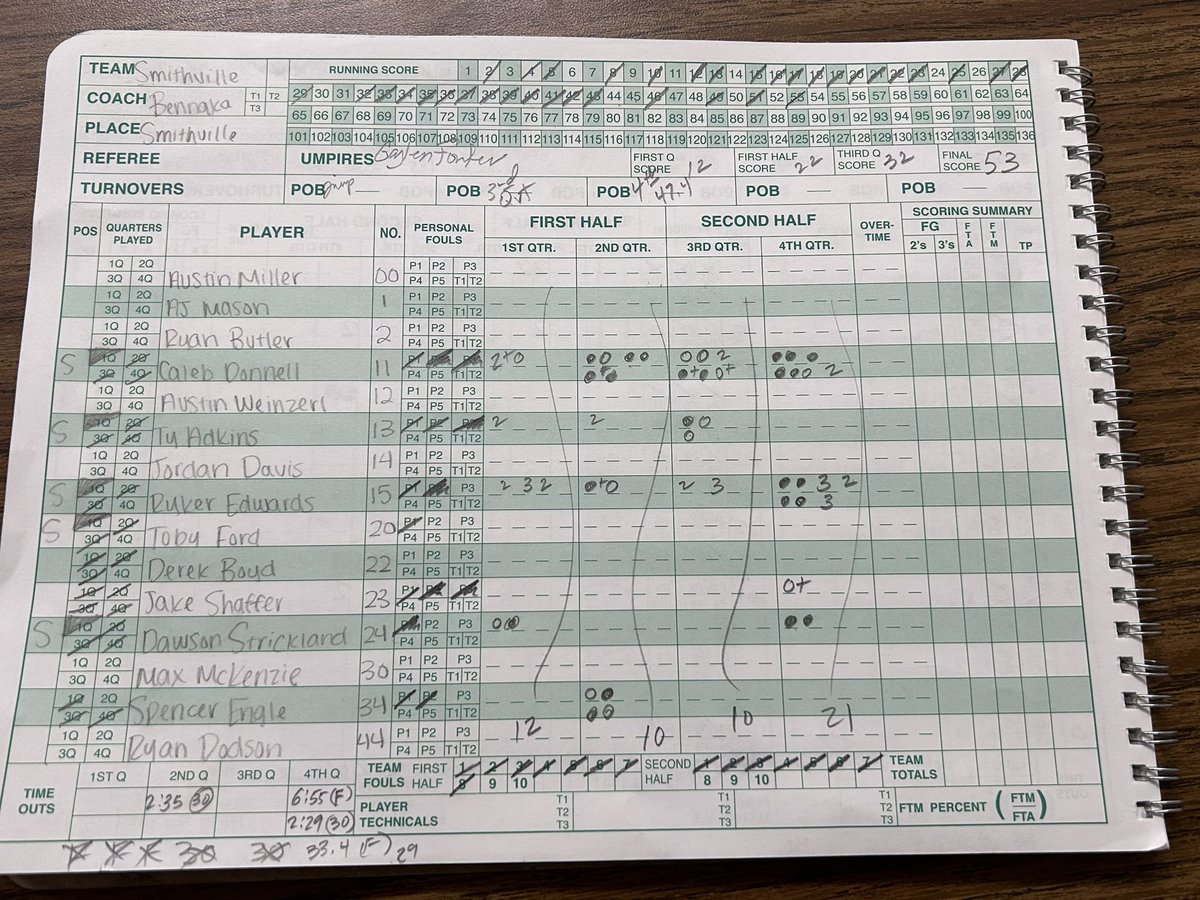 TEAM Smithville RUNNING SCORE 1 2 3 4 5 6 7 8 9 10 11 12 13 14 15 16 17 18 19 20 21 22 23 24 25 26 27 28
COACH Bennaka T1 T2 T3 29 30 31 32 33 34 35 36 37 38 39 40 41 42 43 44 45 46 47 48 49 50 51 52 53 54 55 56 57 58 59 60 61 62 63 64
65 66 67 68 69 70 71 72 73 74 75 76 77 78 79 80 81 82 83 84 85 86 87 88 89 90 91 92 93 94 95 96 97 98 99 100
PLACE Smithville 101 102 103 104 105 106 107 108 109 110 111 112 113 114 115 116 117 118 119 120 121 122 123 124 125 126 127 128 129 130 131 132 133 134 135 136
REFEREE UMPIRES FIRST Q SCORE 12 FIRST HALF SCORE 22 THIRD Q SCORE 32 FINAL SCORE 53
TURNOVERS POB jump — POB 3rd POB 4th 47.4 POB — POB —
POS QUARTERS PLAYED PLAYER NO. PERSONAL FOULS FIRST HALF SECOND HALF OVER-TIME SCORING SUMMARY
1ST QTR. 2ND QTR. 3RD QTR. 4TH QTR. FG 2's 3's FTA FTM TP
1Q 2Q 3Q 4Q Austin Miller 00 P1 P2 P3 P4 P5 T1 T2
1Q 2Q 3Q 4Q AJ Mason 1 P1 P2 P3 P4 P5 T1 T2
1Q 2Q 3Q 4Q Ryan Butler 2 P1 P2 P3 P4 P5 T1 T2
S 1Q 2Q 3Q 4Q Caleb Donnell 11 P1 P2 P3 P4 P5 T1 T2 2+0 2 2
1Q 2Q 3Q 4Q Austin Weinzerl 12 P1 P2 P3 P4 P5 T1 T2
S 1Q 2Q 3Q 4Q Ty Adkins 13 P1 P2 P3 P4 P5 T1 T2 2 2
1Q 2Q 3Q 4Q Jordan Davis 14 P1 P2 P3 P4 P5 T1 T2
S 1Q 2Q 3Q 4Q Ryker Edwards 15 P1 P2 P3 P4 P5 T1 T2 2 3 2 2 3 3 2 3
S 1Q 2Q 3Q 4Q Toby Ford 20 P1 P2 P3 P4 P5 T1 T2
1Q 2Q 3Q 4Q Derek Boyd 22 P1 P2 P3 P4 P5 T1 T2
1Q 2Q 3Q 4Q Jake Shaffer 23 P1 P2 P3 P4 P5 T1 T2 0+
S 1Q 2Q 3Q 4Q Dawson Strickland 24 P1 P2 P3 P4 P5 T1 T2
1Q 2Q 3Q 4Q Max McKenzie 30 P1 P2 P3 P4 P5 T1 T2
1Q 2Q 3Q 4Q Spencer Engle 34 P1 P2 P3 P4 P5 T1 T2
1Q 2Q 3Q 4Q Ryan Dodson 44 P1 P2 P3 P4 P5 T1 T2 12 10 10 21
TIME OUTS 1ST Q 2ND Q 3RD Q 4TH Q TEAM FOULS FIRST HALF 1 2 3 4 5 6 7 8 9 10 SECOND HALF 1 2 3 4 5 6 7 8 9 10 TEAM TOTALS
2:35 (30) 6:55 (F) PLAYER TECHNICALS T1 T2 T3 T1 T2 T3 T1 T2 T3 FTM PERCENT (FTM FTA)
2:29 (30)
30 30 33.4 (F) 29